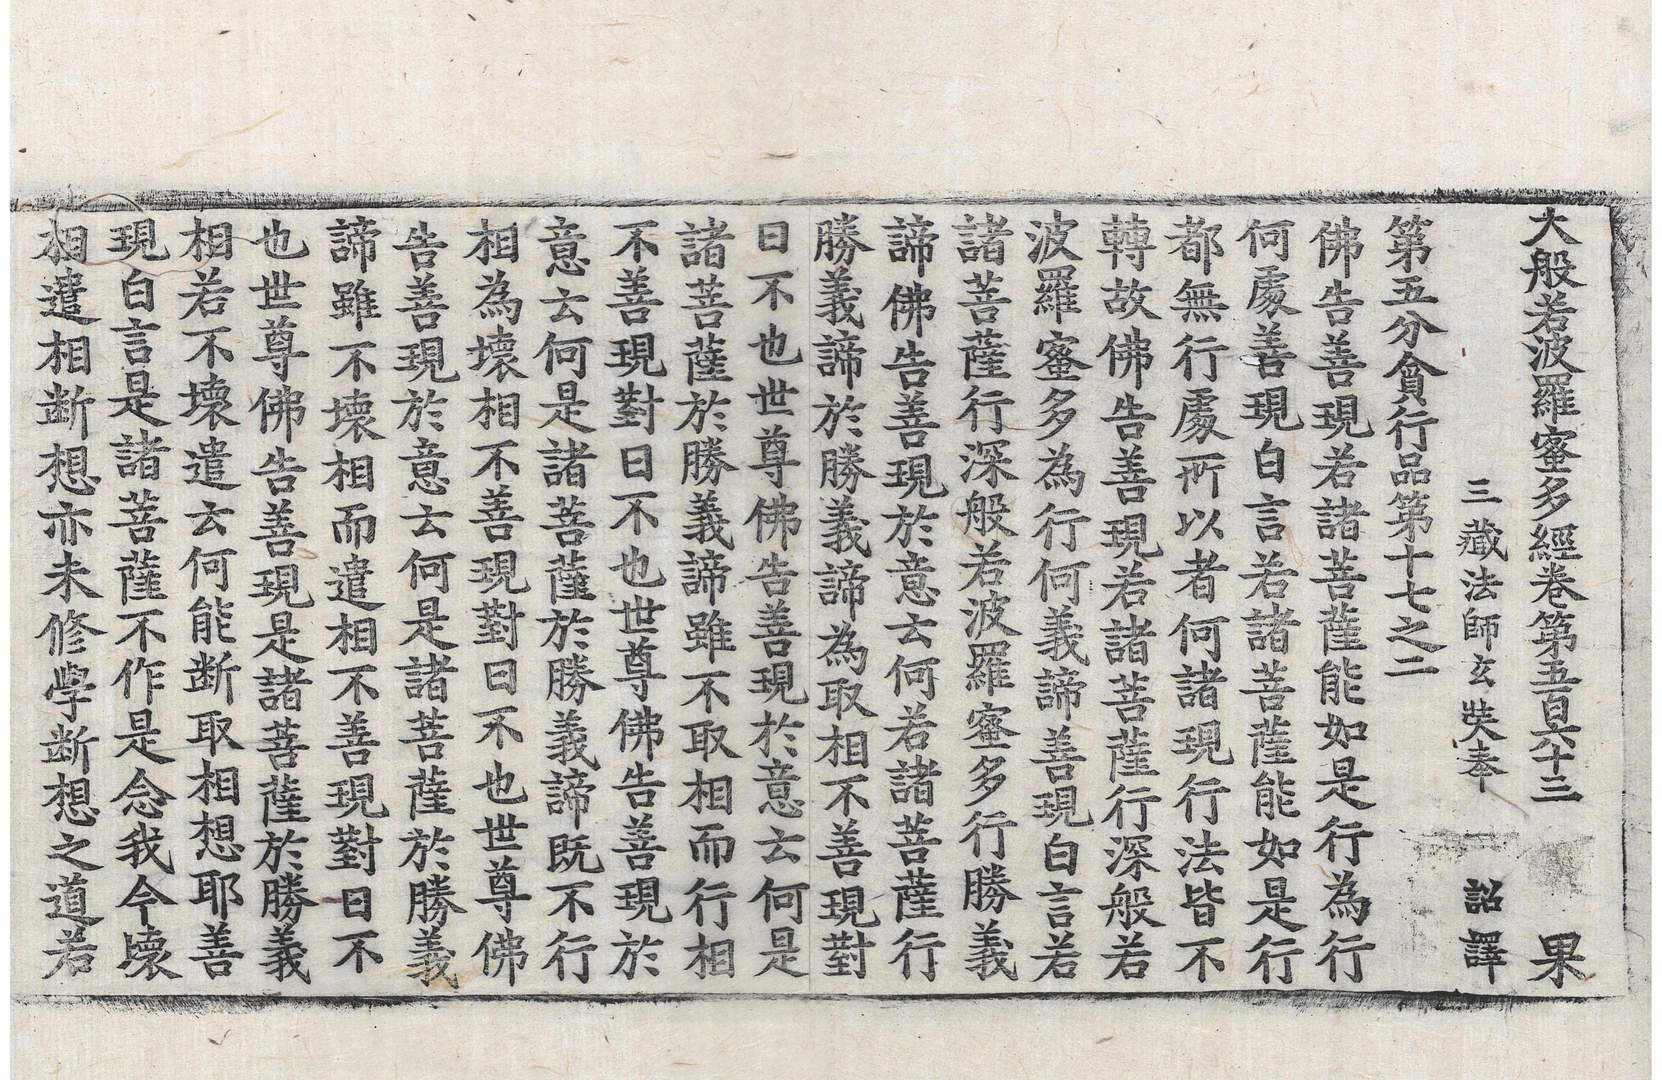 大般若波羅蜜多經卷第五百六十三 果
三藏法師玄奘奉 詔譯
第五分貪行品第十七之二
佛告善現若諸菩薩能如是行為行
何處善現白言若諸菩薩能如是行
都無行處所以者何諸現行法皆不
轉故佛告善現若諸菩薩行深般若
波羅蜜多為行何義諦善現白言若
諸菩薩行深般若波羅蜜多行勝義
諦佛告善現於意云何若諸菩薩行
勝義諦於勝義諦為取相不善現對
曰不也世尊佛告善現於意云何是
諸菩薩於勝義諦雖不取相而行相
不善現對曰不也世尊佛告善現於
意云何是諸菩薩於勝義諦既不行
相為壞相不善現對曰不也世尊佛
告善現於意云何是諸菩薩於勝義
諦雖不壞相而遣相不善現對曰不
也世尊佛告善現是諸菩薩於勝義
相若不壞遣云何能断取相想耶善
現白言是諸菩薩不作是念我今壞
相遣相断想亦未修學断想之道若